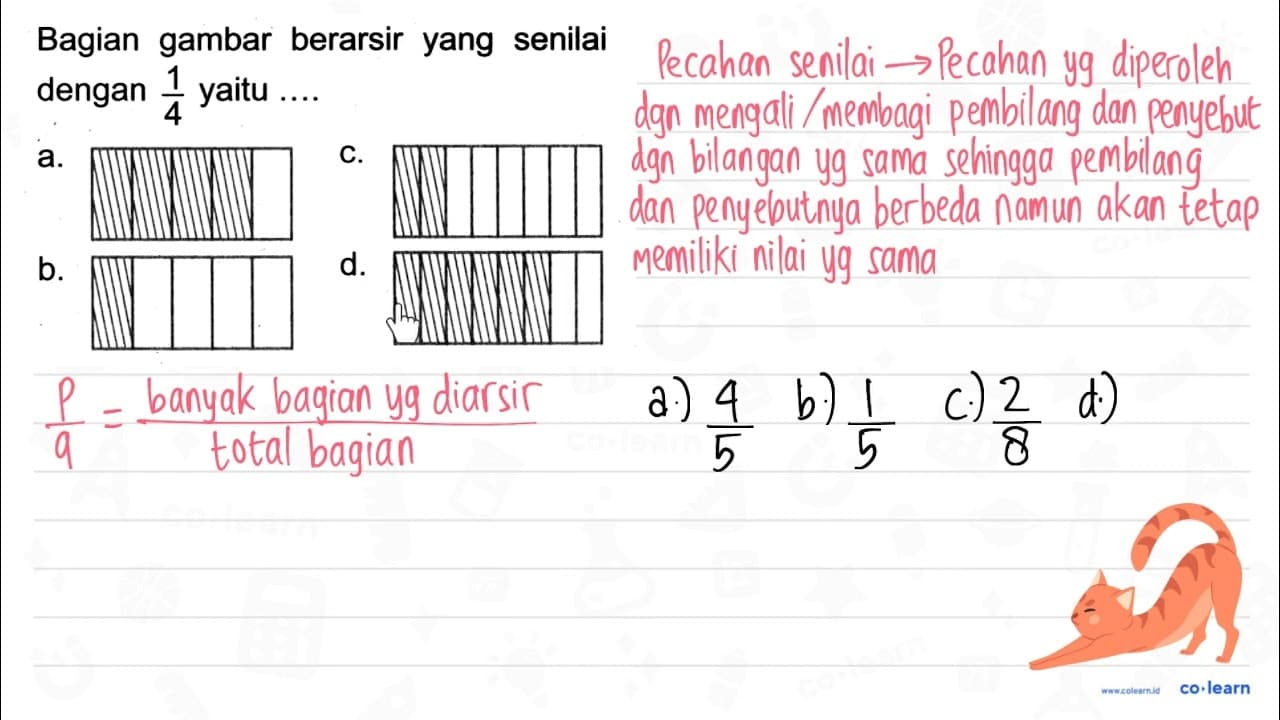 Bagian gambar berarsir yang senilai
dengan 1/4 yaitu ....
a.
c.
b.
d.
Pecahan senilai → Pecahan yg diperoleh
dgn mengali/membagi pembilang dan penyebut
dgn bilangan yg sama sehingga pembilang
dan penyebutnya berbeda namun akan tetap
memiliki nilai yg sama
p/q = banyak bagian yg diarsir/total bagian
a.) 4/5 b.) 1/5 c.) 2/8 d.)
www.colearn.id co·learn